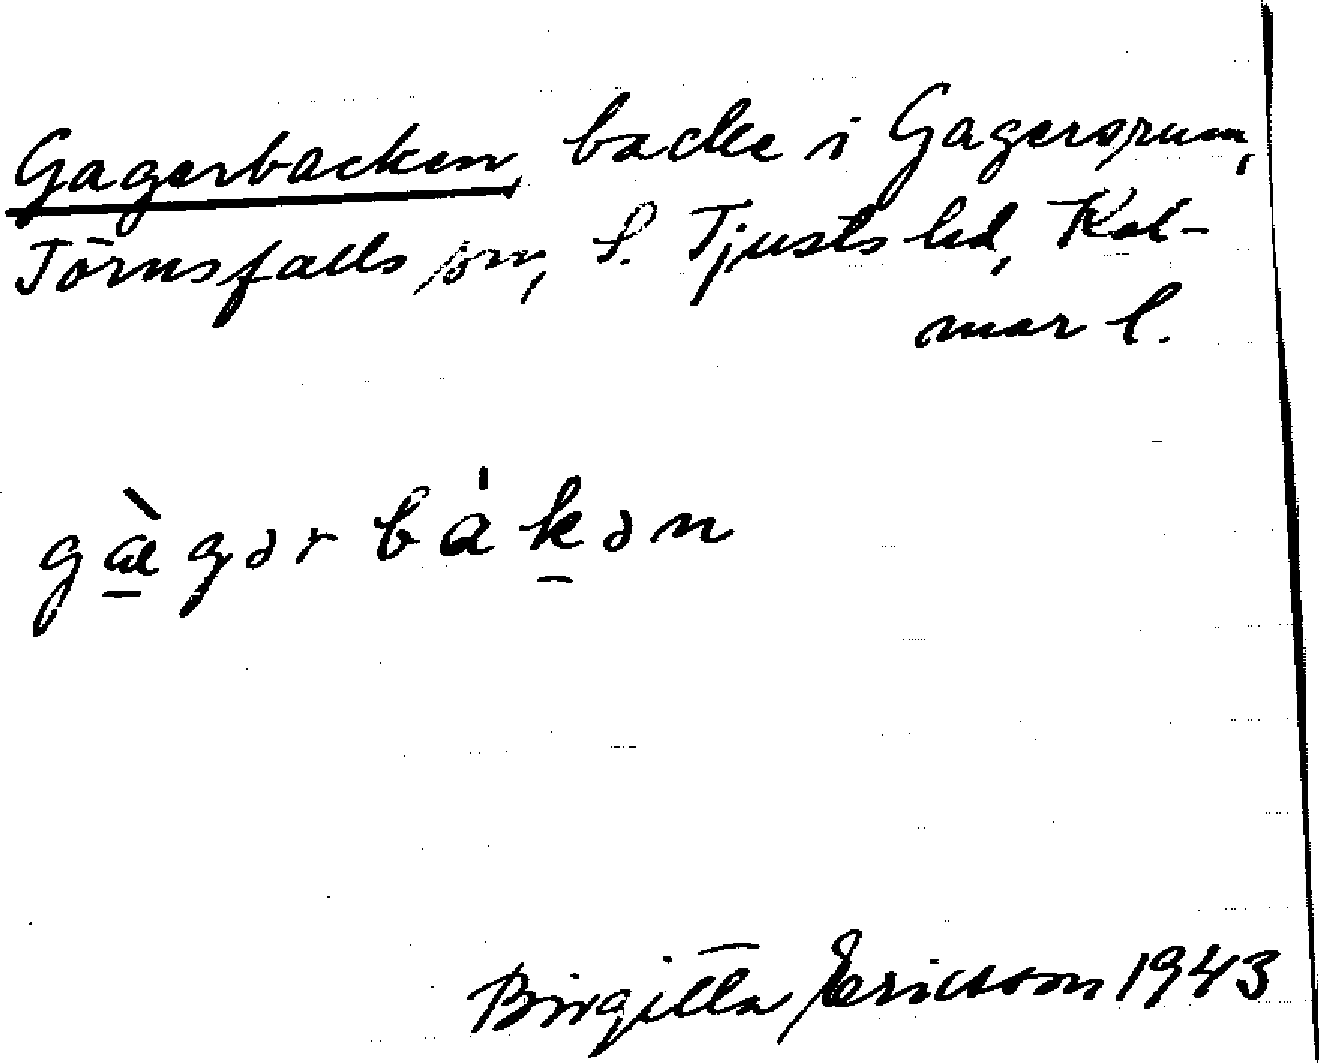 Gagerbacken, backe i Gagersrum,
Törnsfalls sn, S. Tjusts hd, Kal-
mar l.
gæ̀gər bákən
Birgitta Ericsson 1943